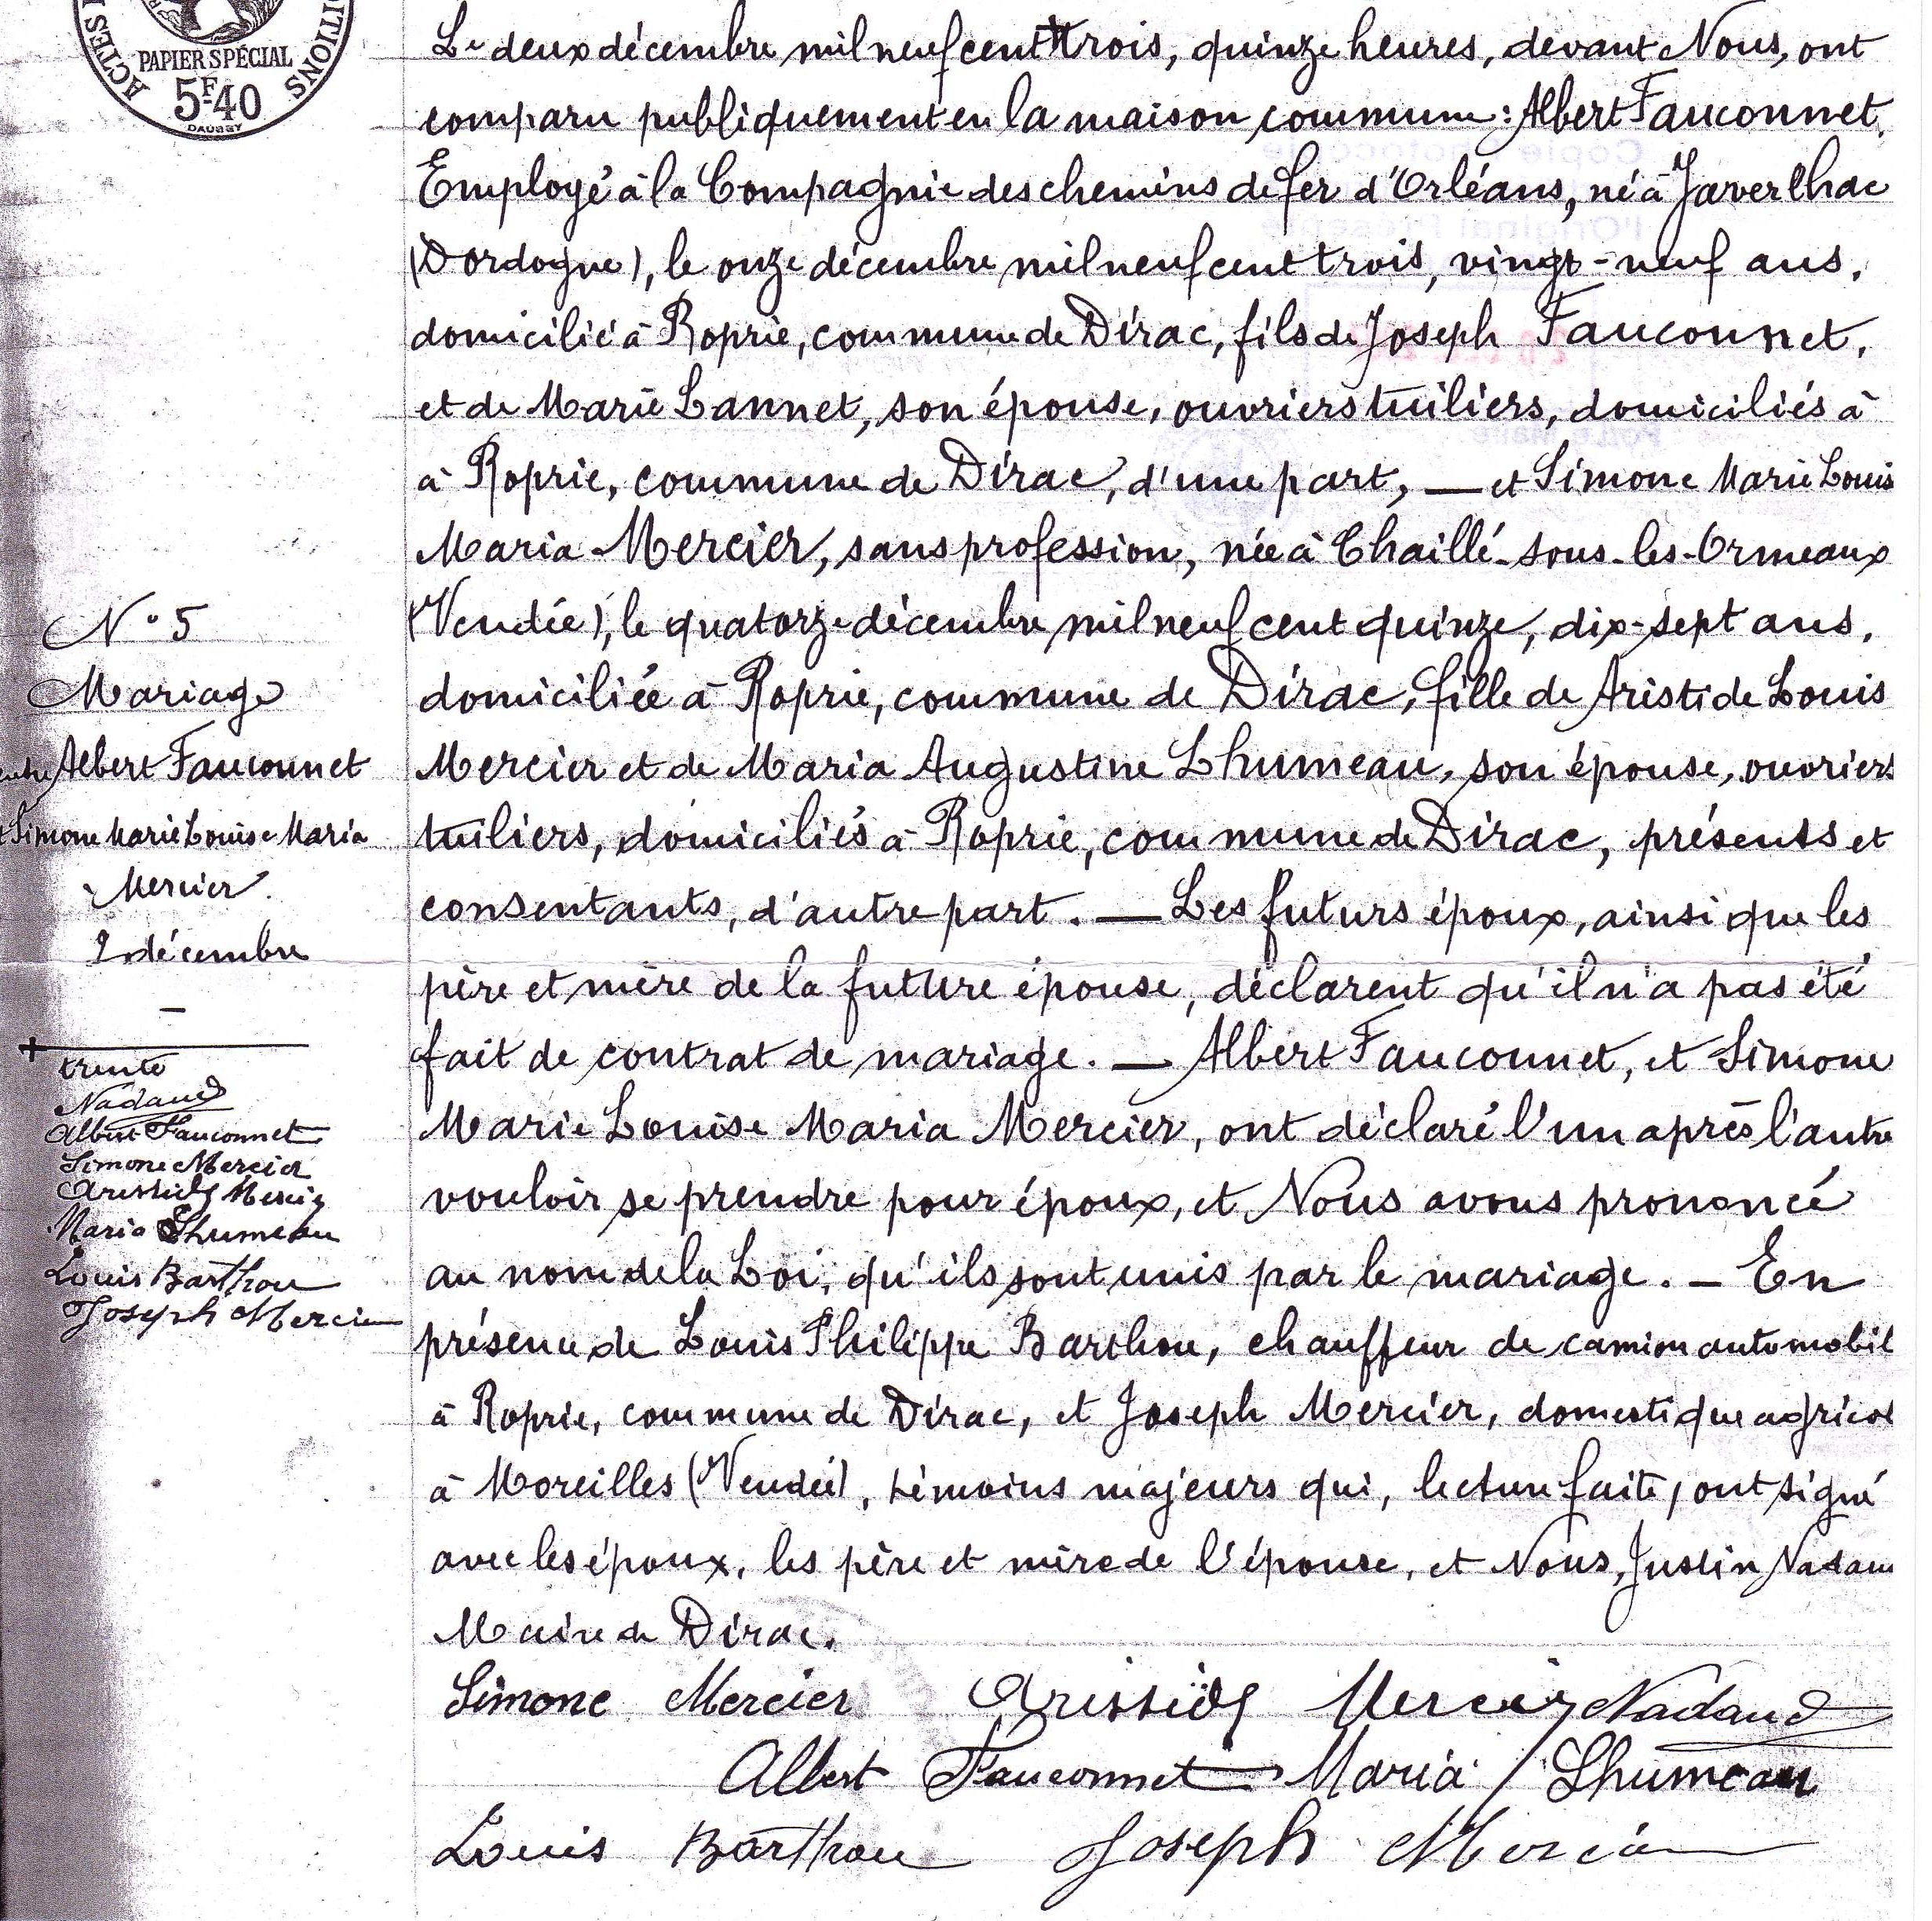 ACTES
ITIONS
PAPIER SPÉCIAL
5F.40
DAUSSY
Le deux décembre mil neuf cent + trois, quinze heures, devant Nous, ont
comparu publiquement en la maison commune : Albert Fauconnet,
Employé à la Compagnie des chemins de fer d'Orléans, né à Javerlhac
(Dordogne), le onze décembre mil neuf cent trois, vingt-neuf ans,
domicilié à Roprie, commune de Dirac, fils de Joseph Fauconnet,
et de Marie Lannet, son épouse, ouvriers tuiliers, domiciliés à
à Roprie, commune de Dirac, d'une part, — et Simone Marie Louis
Maria Mercier, sans profession, née à Chaillé-sous-les-Ormeaux
(Vendée), le quatorze décembre mil neuf cent quinze, dix-sept ans,
domiciliée à Roprie, commune de Dirac, fille de Aristide Louis
Mercier et de Maria Augustine Lhumeau, son épouse, ouvriers
tuiliers, domiciliés à Roprie, commune de Dirac, présents et
consentants, d'autre part. — Les futurs époux, ainsi que les
père et mère de la future épouse, déclarent qu'il n'a pas été
fait de contrat de mariage. — Albert Fauconnet, et Simone
Marie Louise Maria Mercier, ont déclaré l'un après l'autre
vouloir se prendre pour époux, et Nous avons prononcé
au nom de la Loi, qu'ils sont unis par le mariage. — En
présence de Louis Philippe Barthou, chauffeur de camion automobil
à Roprie, commune de Dirac, et Joseph Mercier, domestique agricol
à Moreilles (Vendée), témoins majeurs qui, lecture faite, ont signé
avec les époux, les père et mère de l'épouse, et Nous, Justin Nadau
Maire de Dirac.
Simone Mercier Aristide Mercier Nadaud
Albert Fauconnet Maria Lhumeau
Louis Barthou Joseph Mercier
N° 5
Mariage
entre Albert Fauconnet
et Simone Marie Louise Maria
Mercier.
2 décembre
—
+
trente
Nadaud
Albert Fauconnet
Simone Mercier
Aristide Mercier
Maria Lhumeau
Louis Barthou
Joseph Mercier